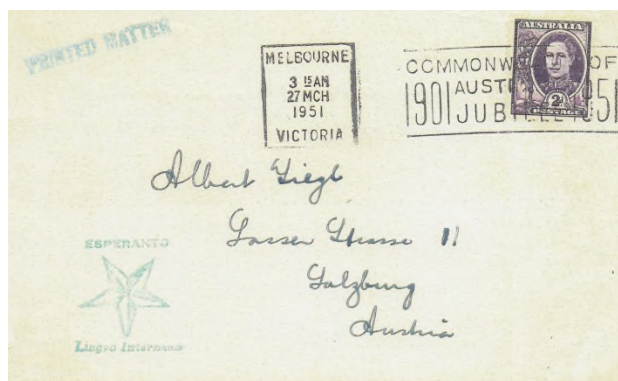 PRINTED MATTER
MELBOURNE
3 15AM
27 MCH
1951
VICTORIA
COMMONWEALTH OF
AUSTRALIA
1901 JUBILEE 1951
AUSTRALIA
2D
POSTAGE
Albert
Strasse 11
Salzburg
Austria
ESPERANTO
Lingvo Internacia